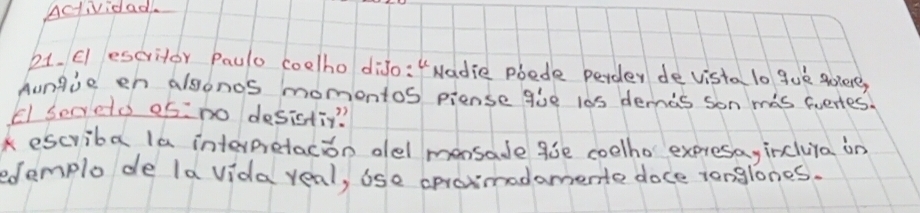 Actividad.
21- El escritor Paulo coelho dijo: "Nadie pbede perder de vista lo que quiere,
Aunque en algonos momentos piense que los demás son más fuertes.
El secreto es: no desistir".
* escriba la interpretación del mensaje que coelho expresa, incluya ún
ejemplo de la vida real, use aproximadamente doce renglones.